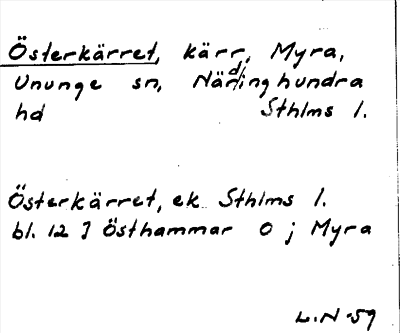 Österkärret, kärr, Myra,
Ununge sn, Närdinghundra
hd Sthlms l.
Österkärret, ek. Sthlms l.
bl. 12 J Östhammar O j Myra
L.N -59